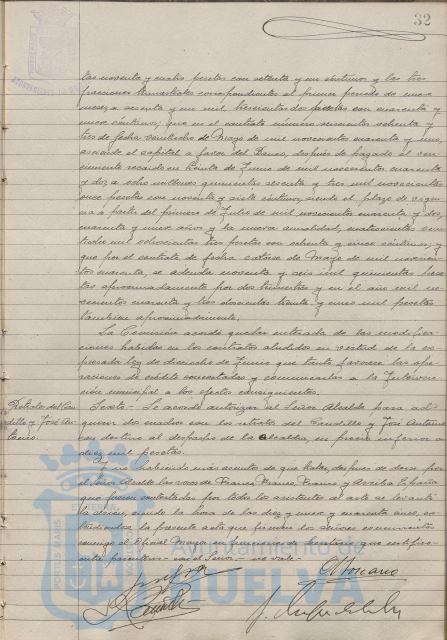 32
tas noventa y cuatro pesetas con setenta y un céntimos y las tres
fracciones trimestrales correspondientes al primer periodo de
a sesenta y un mil trescientas dos pesetas con cuarenta y
nueve céntimos; que en el contrato número seiscientos ochenta y
tres de fecha veintiocho de Mayo de mil novecientos cuarenta y uno,
asciende el capital a favor del Banco, después de pagado el ven-
cimiento recaído en treinta de Junio de mil novecientos cuarenta
y dos, a ocho millones quinientas sesenta y tres mil novecientas
once pesetas con noventa y siete céntimos, siendo el plazo de
a partir del primero de Julio de mil novecientos cuarenta y dos,
cuarenta y nueve años y la nueva anualidad, cuatrocientas
mil ochocientas tres pesetas con ochenta y nueve céntimos; y
que por el contrato de fecha catorce de Mayo de mil novecien-
tos cuarenta, se adeuda noventa y seis mil quinientas pese-
tas aproximadamente por dos trimestres y en el año mil no-
vecientos cuarenta y tres doscientas treinta y nueve mil pesetas
también aproximadamente.
La Comisión acordó quedar enterada de las modifica-
ciones habidas en los contratos aludidos en virtud de la ex-
presada Ley de dieciocho de Junio que tanto favorece las ope-
raciones de crédito concertadas y comunicarlas a la Interven-
ción municipal a los efectos consiguientes.
Retratos del Cau-
dillo y José An-
tonio.
Sexto.- Se acordó autorizar al Señor Alcalde para ad-
quirir dos cuadros con los retratos del Caudillo y José Antonio
con destino al despacho de la Alcaldía, en precio inferior a
diez mil pesetas.
Y no habiendo más asuntos de que tratar, después de darse por
el Señor Alcalde las voces de Franco, Franco, Franco y Arriba España
que fueron contestadas por todos los asistentes al acto se levantó
la sesión, siendo la hora de las diez y nueve y cuarenta cinco, ex-
tendiéndose la presente acta que firman los señores concurrentes
conmigo el Oficial Mayor en funciones de Secretario que certifico.
PORTUS MARIS
Ayuntamiento de
HUELVA